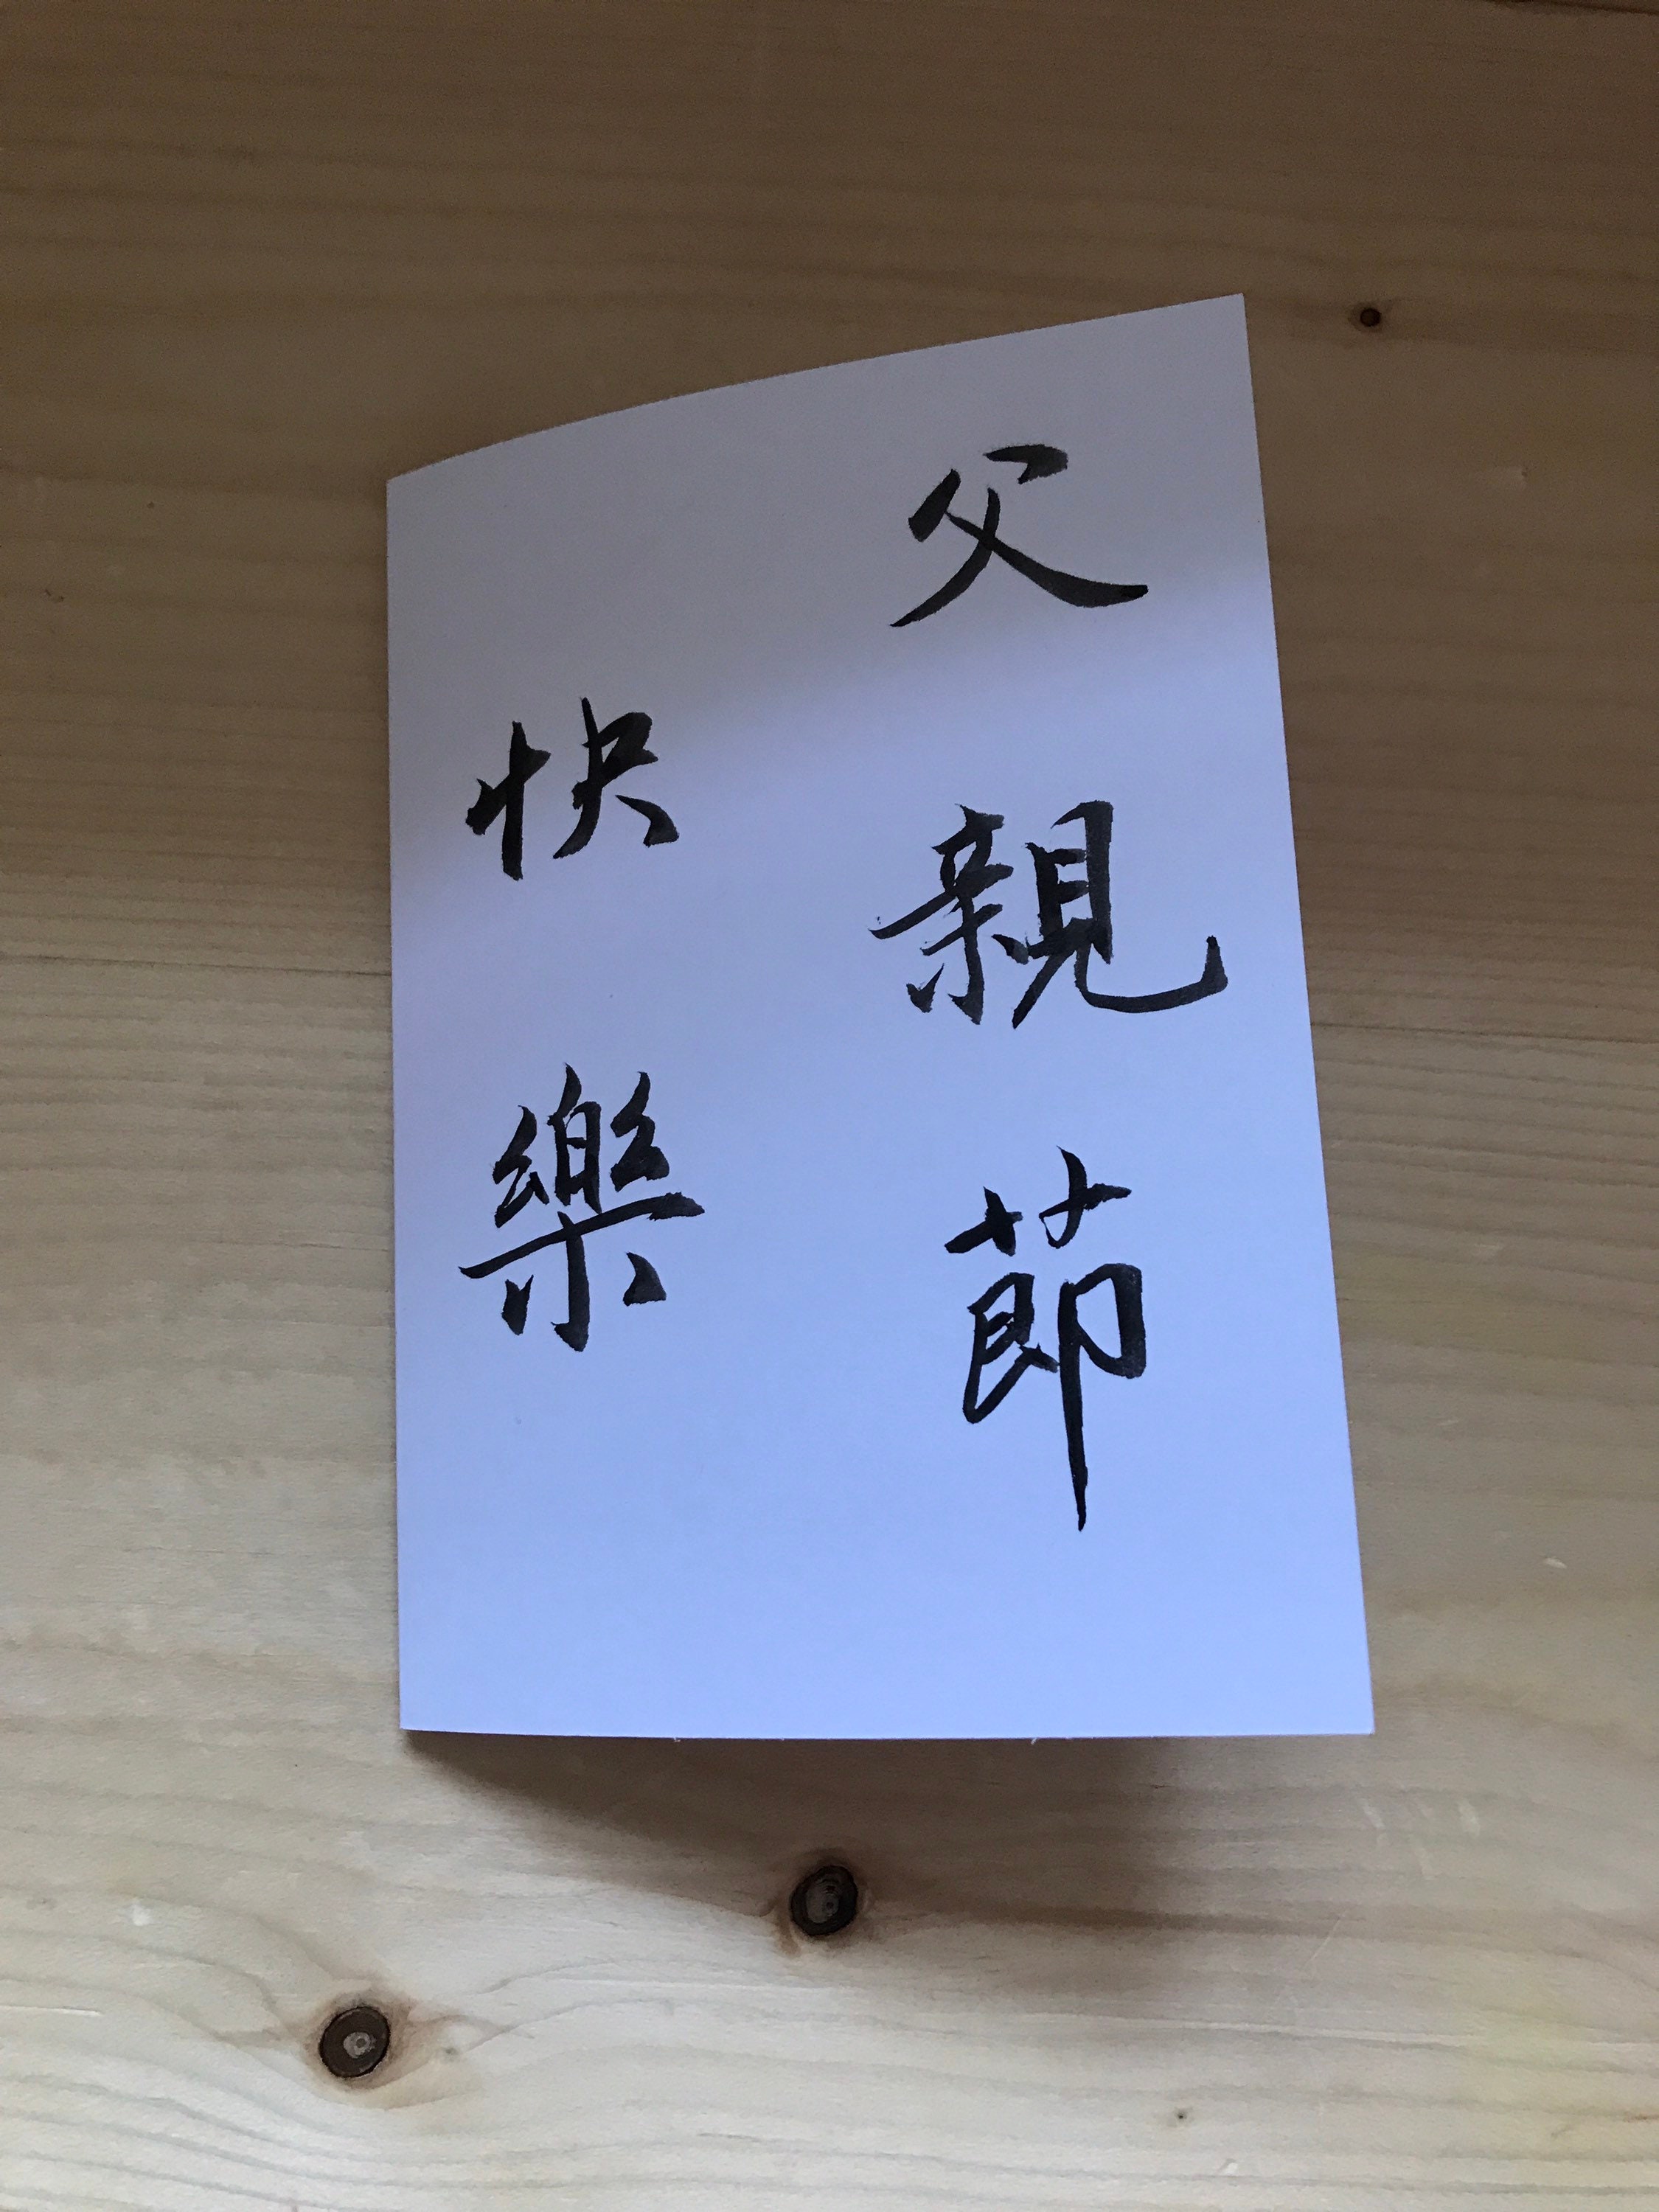 父親節
快樂